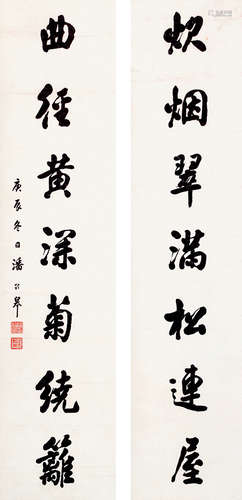 炊烟翠滿松連屋
曲徑黄深菊繞籬
庚辰冬日潘皋